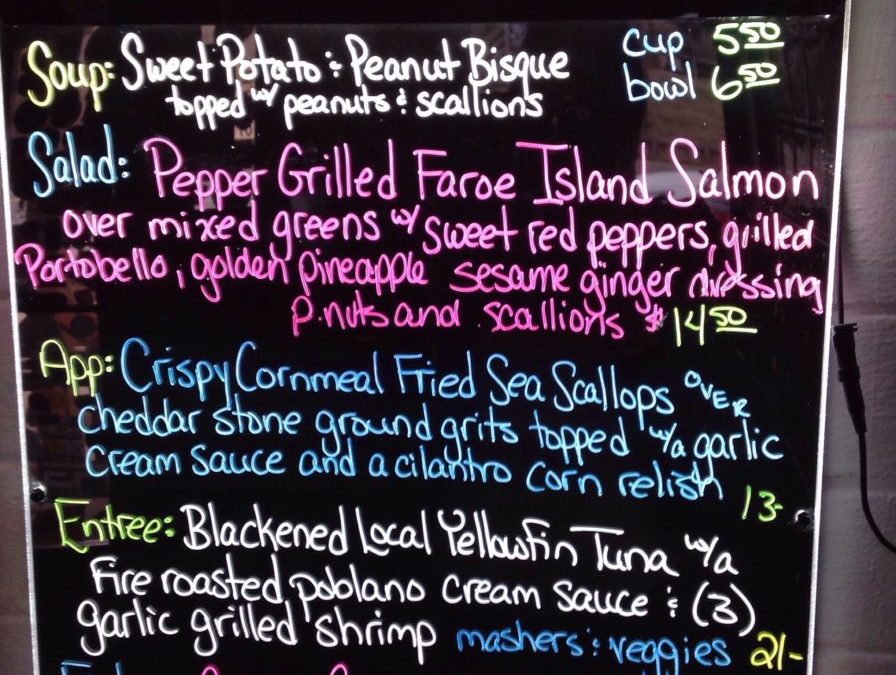 Soup: Sweet Potato & Peanut Bisque cup 5.50
topped w/ peanuts & scallions bowl 6.50
Salad: Pepper Grilled Faroe Island Salmon
over mixed greens w/ sweet red peppers, grilled
Portobello, golden pineapple sesame ginger dressing
p.nuts and scallions $14.50
App: Crispy Cornmeal Fried Sea Scallops OVER
cheddar stone ground grits topped w/a garlic
cream sauce and a cilantro corn relish
13-
Entree: Blackened Local Yellowfin Tuna w/a
fire roasted poblano cream sauce & (3)
garlic grilled shrimp mashers & veggies 21-